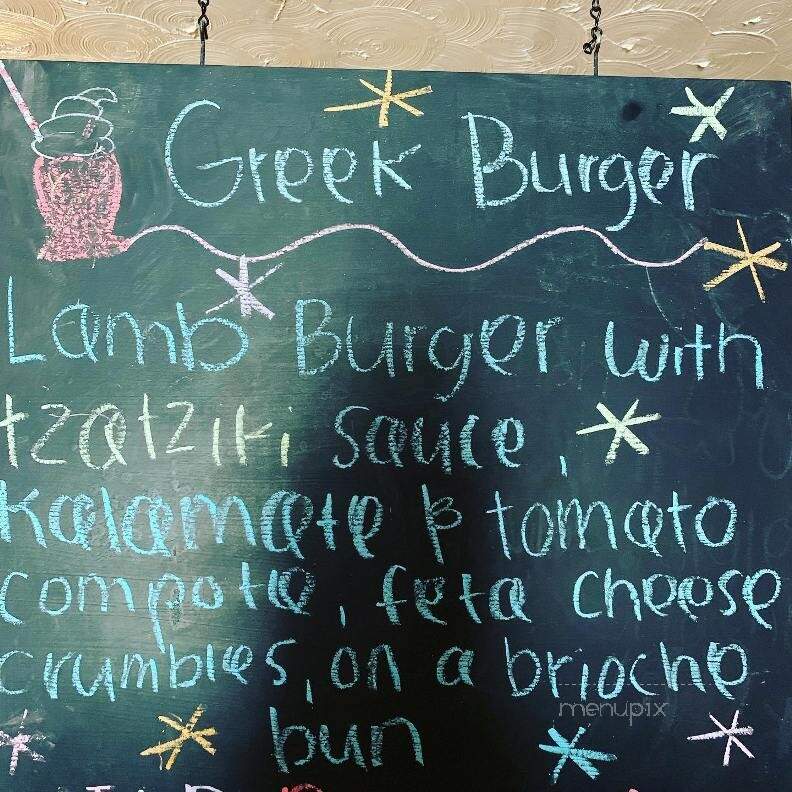 Greek Burger
Lamb Burger with
tzatziki sauce,
kalamate & tomato
compote, feta cheese
crumbles, on a brioche
menupix
bun